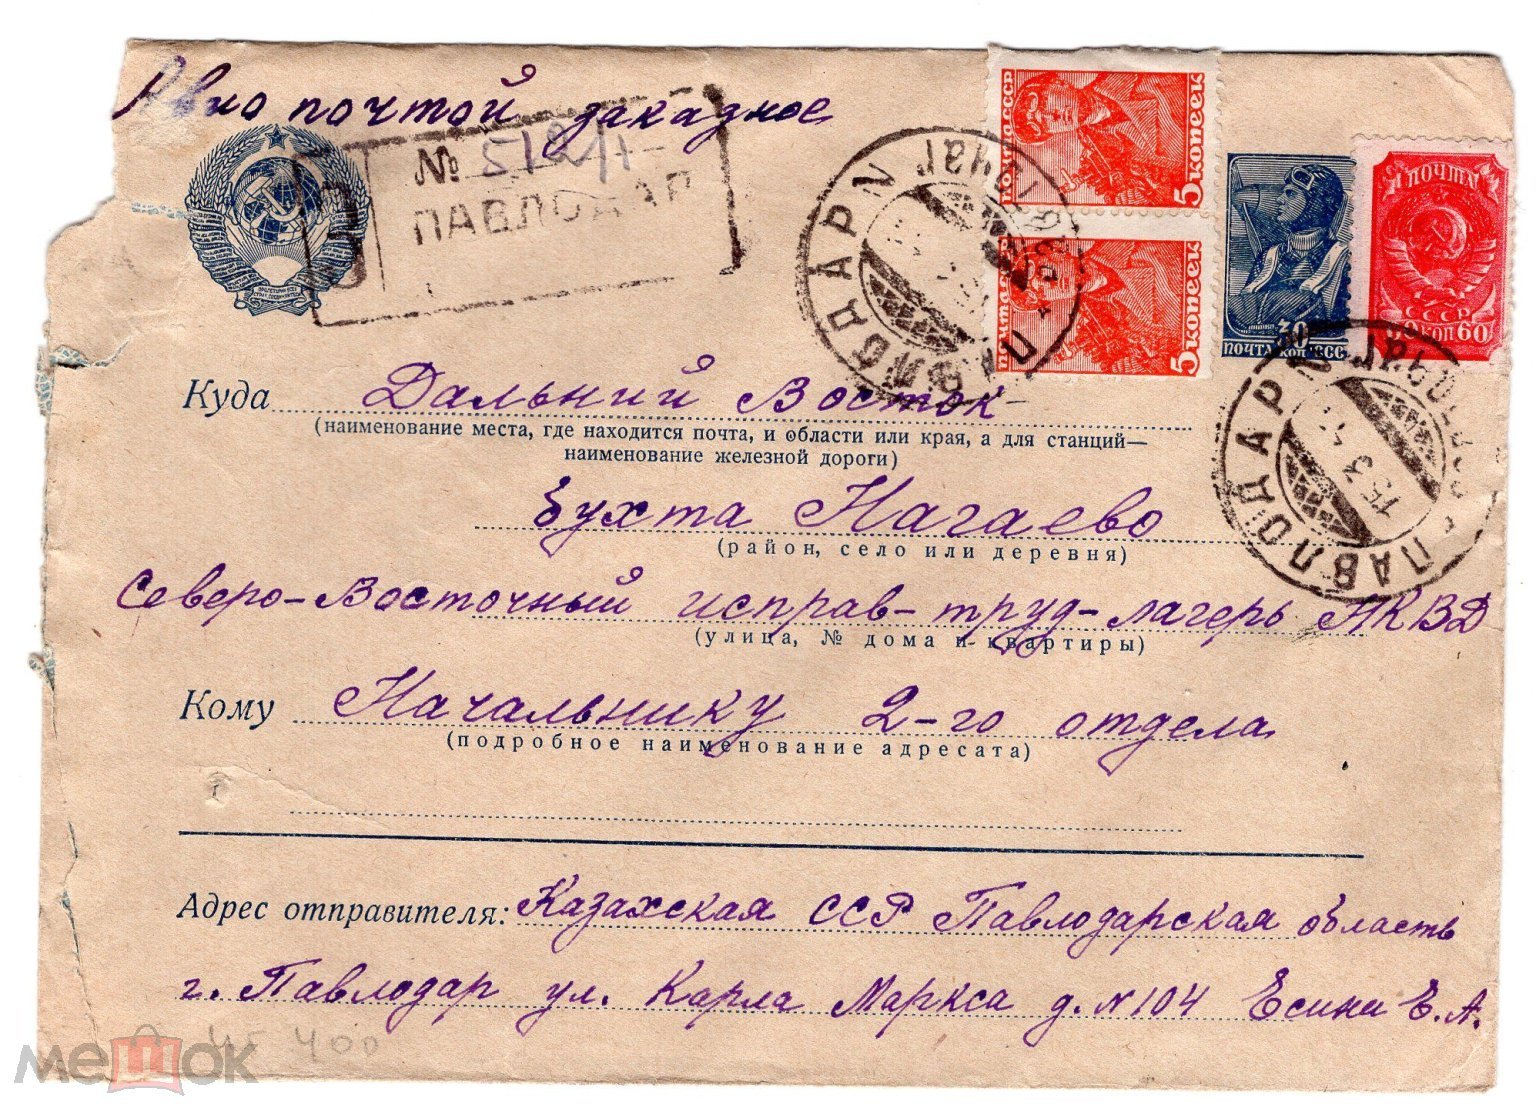 Авио почтой заказное
№
ПАВЛОДАР
ПОЧТА СССР
5 КОПЕЕК
ПОЧТА СССР
5 КОПЕЕК
30
ПОЧТА КОП СССР
ПОЧТА
СССР
60 КОП 60
ПАВЛОДАР
ПАВЛОДАР
15.3
Куда Дальний Восток
(наименование места, где находится почта, и области или края, а для станций—
наименование железной дороги)
Бухта Нагаево
(район, село или деревня)
Северо-Восточный исправ-труд-лагерь НКВД
(улица, № дома и квартиры)
Кому Начальнику 2-го отдела
(подробное наименование адресата)
Адрес отправителя: Казахская ССР Павлодарская область
г. Павлодар ул. Карла Маркса д. №104 Есини Е. А.
400
мешок